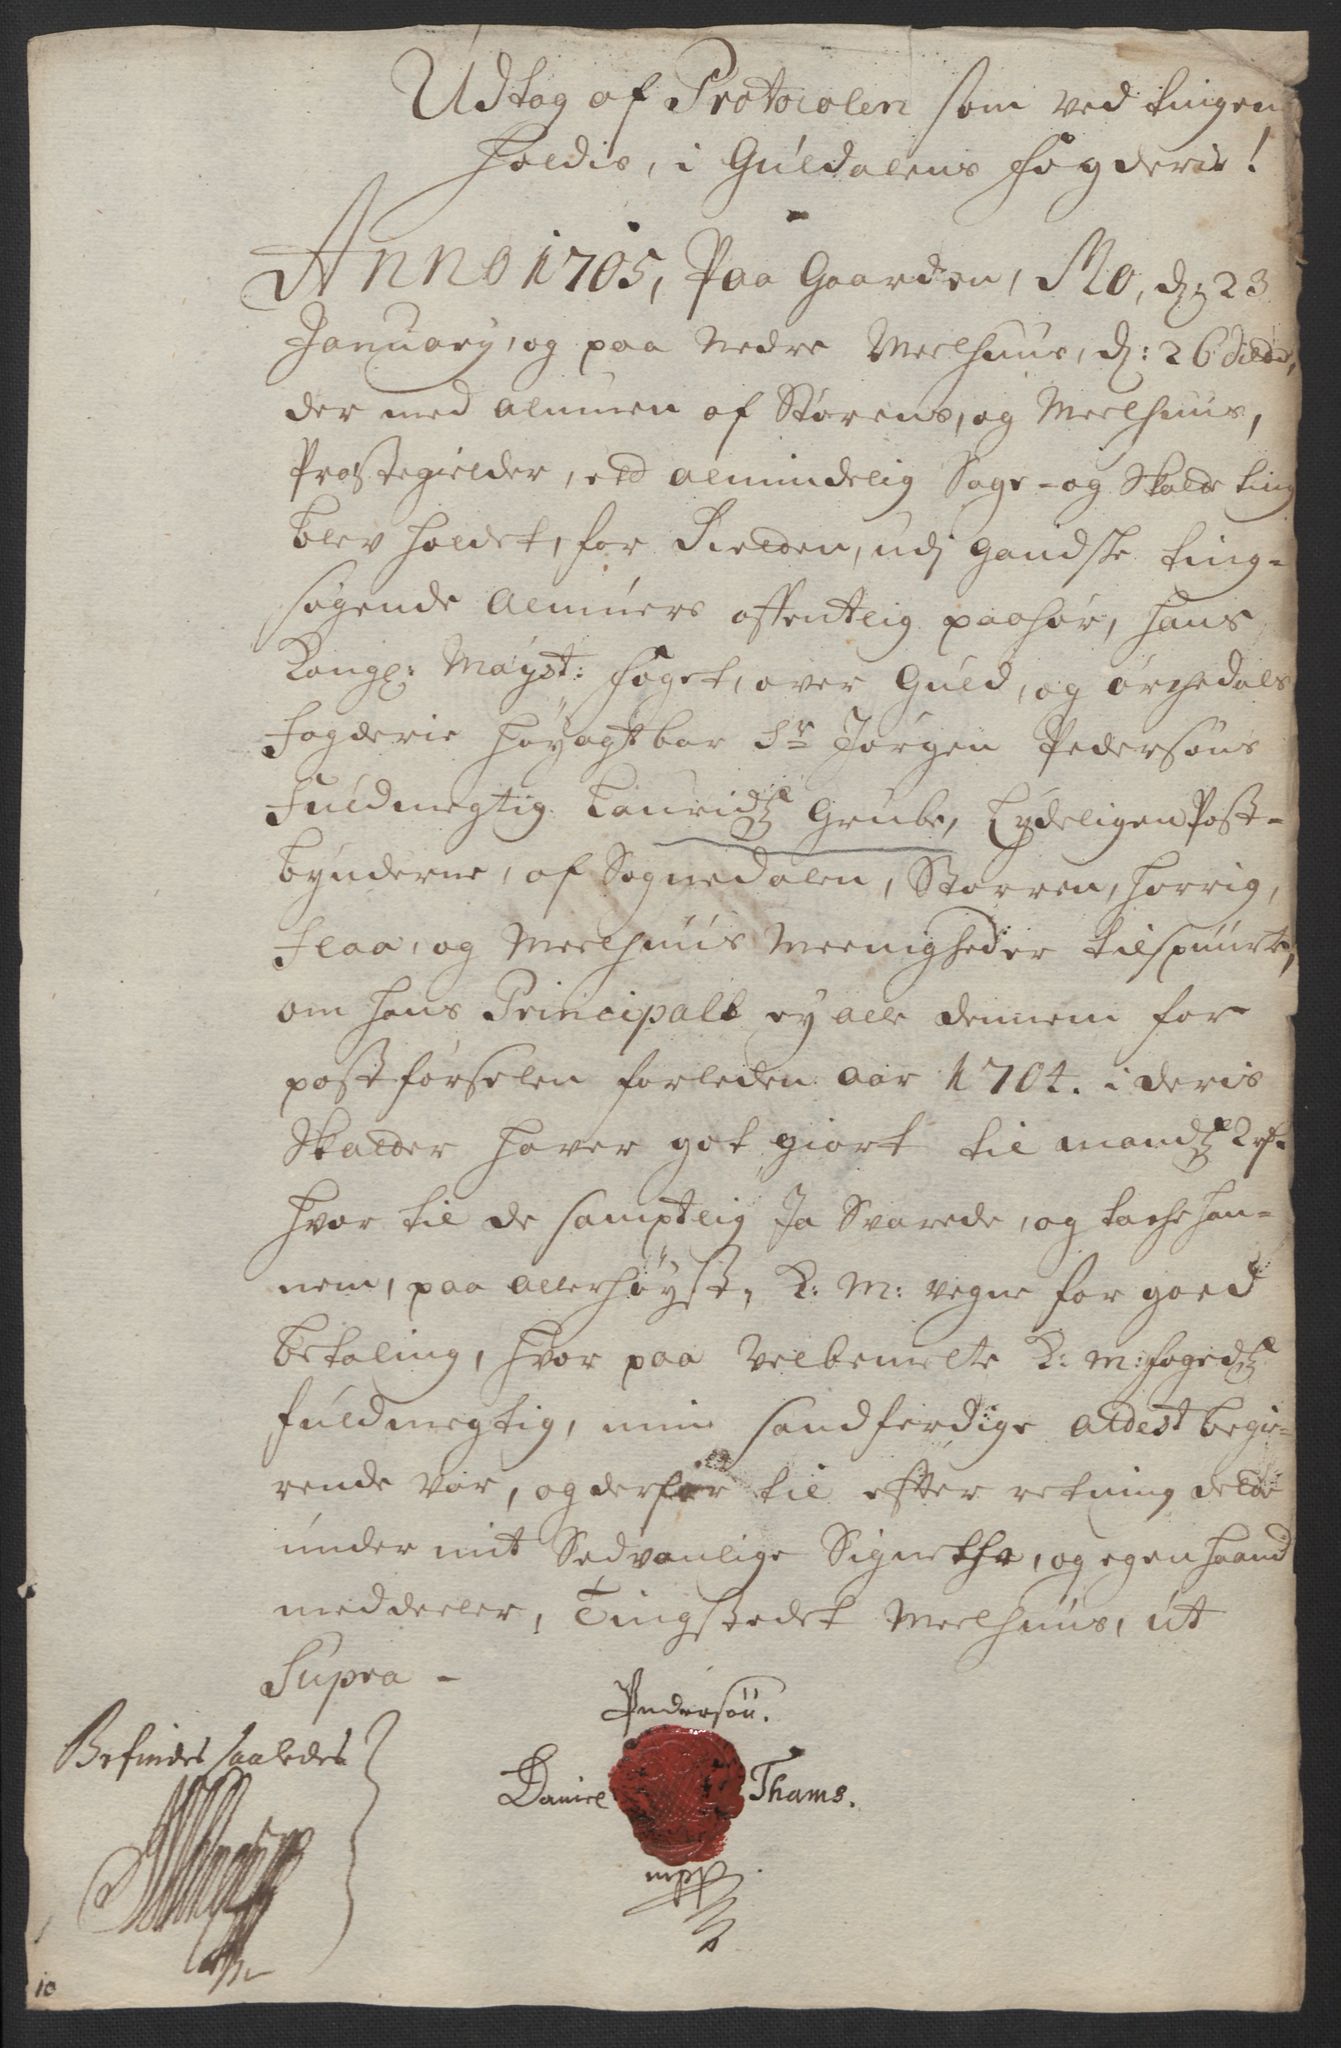 Udtog af Protocolen som ved tingen
holdis, i Guldalens fogderie!
Anno 1705, Paa Gaarden, Mo, d: 23
January, og paa Nedre Meelhuus, d: 26 dito,
der med almuen af Størens, og Meelhuus,
Præstegielder, eed almindelig Sage- og Skatte ting
blev holdet, for Retten, udj gandske ting-
søgende Almues offentlig paahør, hans
Kongl: Mayst: foget, over Guld, og ørchedals
fogderie høyagtbar Sr Jørgen Pedersøns
fuldmegtig Lauridtz Grube, lydeligen Post-
bynderne, af Sognedalen, Støren, horrig,
flaa, og Meelhuus Meenigheder tilspuurte,
om hans Principall ey alle dennem for
postførselen forleden aar 1704. i deris
Skatter haver got giort til mandtz 2 rf.
hvor til de samptlig Ja Svarede, og tache han-
nem, paa allerhøyste, K: M: vegne for goed
betaling, hvor paa velbemelte K: M: fogedtz
fuldmegtig, min sandferdige attest begie-
rende var, og derfor til efter retning dette
under mit Sedvanlige Signethe, og egen haand
meddeeler, Tingstedet Meelhuus, ut
Supra -
Pedersøn.
Befindes saaledes
Daniel Thams.
mpp
10